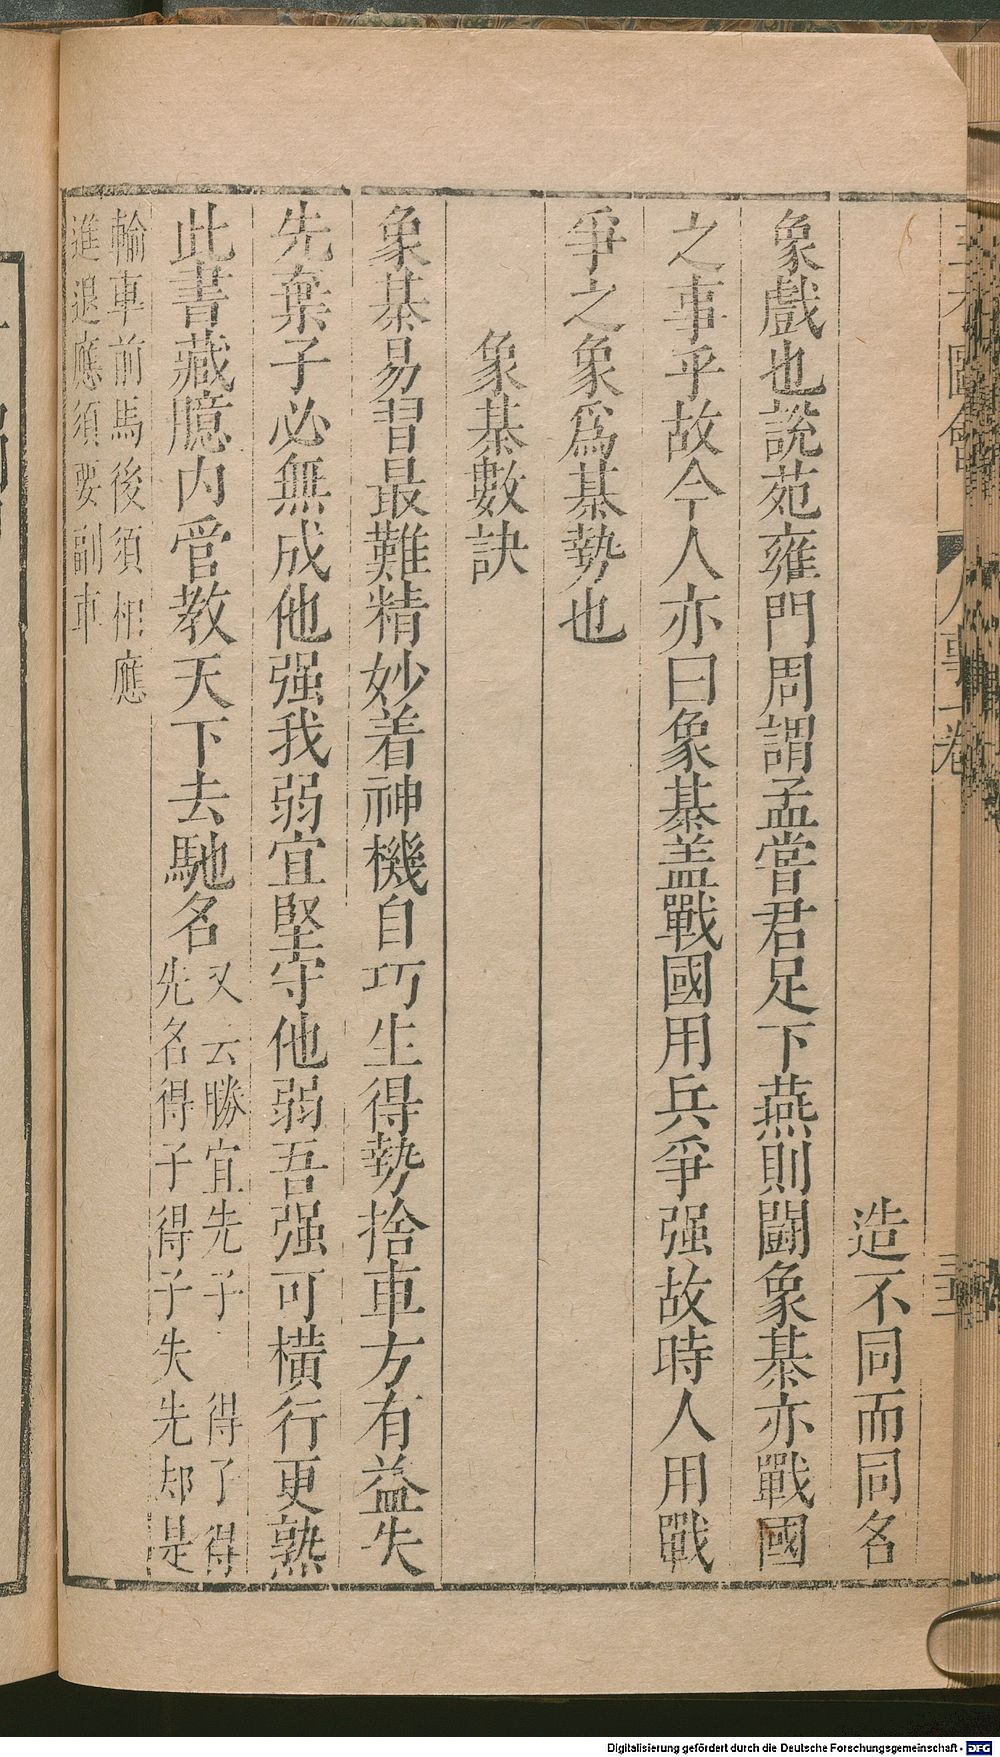 三才圖會 人事一卷 三十二
造不同而同名
象戲也說苑雍門周謂孟嘗君足下燕則鬪象棊亦戰國
之事乎故今人亦曰象棊盖戰國用兵爭强故時人用戰
爭之象爲棊勢也
象棊數訣
象棊易習最難精妙着神機自巧生得勢捨車方有益失
先棄子必無成他强我弱宜堅守他弱吾强可横行更熟
此書藏臆内管教天下去馳名
又云勝宜先子 得了得
先名得子得子失先却是
輸車前馬後須相應
進退應須要副車
Digitalisierung gefördert durch die Deutsche Forschungsgemeinschaft - DFG